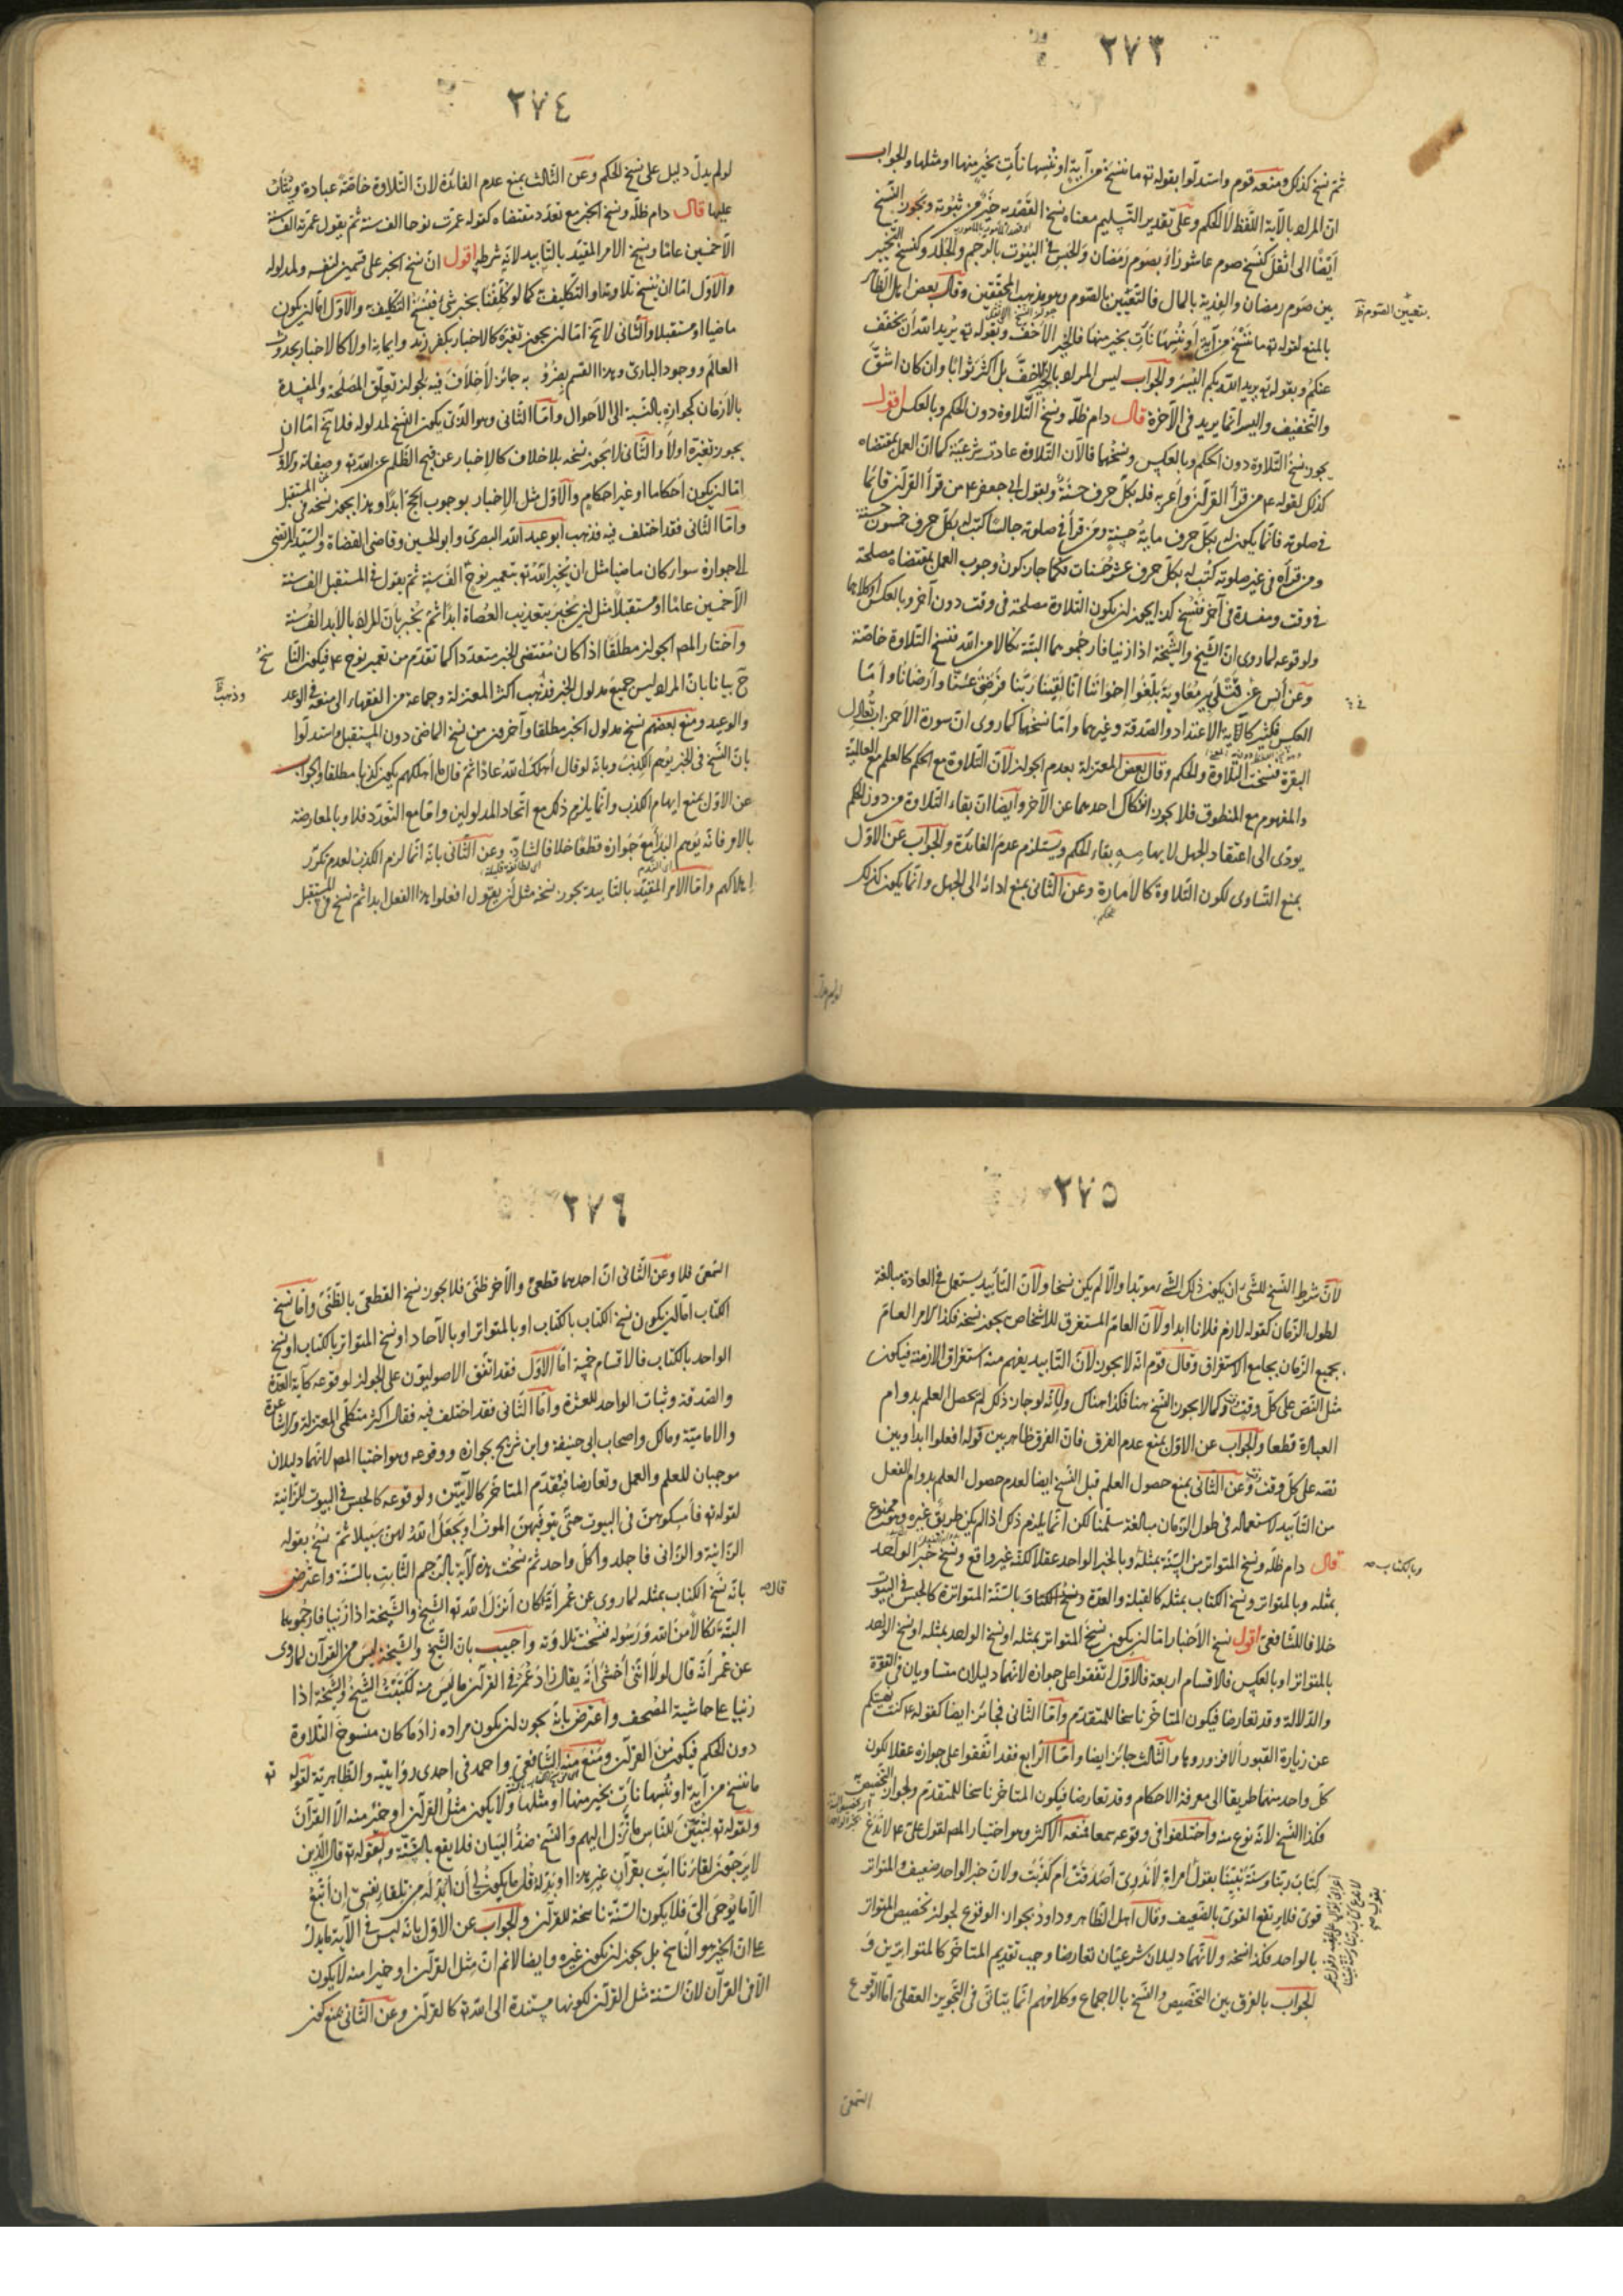 ٢٧٣
ثم نسخ كذلك ومنعه قوم واستدلوا بقوله تع ما ننسخ من آية او ننسها نأت بخير منها او مثلها والجواب
ان المراد بالآية اللفظ لا الحكم وعلى تقدير التسليم معناه نسخ الفقد به خير من ثبوته ويجوز النسخ
ايضا الى اثقل كنسخ صوم عاشورا بصوم رمضان والحبس في البيوت بالرجم والجلد وكنسخ التخيير
بين صوم رمضان والفدية بالمال فالتعيين بالصوم وهو مذهب المحققين وقال بعض اهل الظاهر
بتعيين الصوم
بالمنع لقوله تع ما ننسخ من آية أو ننسها نأت بخير منها فالخير الأخف وبقوله تع يريد الله أن يخفف
عنكم وبقوله تع يريد الله بكم اليسر والجواب ليس المراد بالخير الاخف بل اكثر ثوابا وان كان اشق
والتخفيف واليسر انما يريد في الآخرة قال دام ظله ونسخ التلاوة دون الحكم وبالعكس اقول
يجوز نسخ التلاوة دون الحكم وبالعكس ونسخهما فالان التلاوة عادت شرعية كما ان العمل بمقتضاه
كذلك لقوله ع من قرأ القرآن وأعربه فله بكل حرف حسنة وبقول ابي جعفر ع من قرأ القرآن قائما
في صلوته قائما يكون له بكل حرف ماية حسنة ومن قرأ في صلوته جالسا كتب له بكل حرف خمسون حسنة
ومن قرأه في غير صلوته كتب له بكل حرف عشر حسنات فكما جاز كون وجوب العمل بمقتضاه مصلحة
في وقت ومفسدة في آخر فنسخ كذا يجوز ان يكون التلاوة مصلحة في وقت دون آخر وبالعكس او كلاهما
ولوقوعه لما روى ان الشيخ والشيخة اذا زنيا فارجموهما البتة نكالا من الله فنسخ التلاوة خاصة
وعن أنس عن قتلى بير معاوية بلغوا إخواننا انا لقينا ربنا فرضى عنا وأرضانا وأما
العكس فكثير كآية الاعتداد والصدقة وغيرهما وأما نسخهما كما روى ان سورة الأحزاب تعادل
البقرة فنسخت التلاوة والحكم وقال بعض المعتزلة بعدم الجواز لان التلاوة مع الحكم كالعلم مع العالمية
والمفهوم مع المنطوق فلا يجوز انفكاك احدهما عن الآخر وأيضا ان بقاء التلاوة من دون الحكم
يودى الى اعتقاد الجهل لايهامه بقاء الحكم ويستلزم عدم الفائدة والجواب عن الاول
بمنع التساوى لكون التلاوة كالأمارة وعن الثاني بمنع ادائه الى الجهل وانما يكون كذلك
لو لم يدل
٢٧٤
لو لم يدل دليل على نسخ الحكم وعن الثالث بمنع عدم الفائدة لان التلاوة خاصة عبادة ويثاب
عليها قال دام ظله ونسخ الخبر مع تعدد مقتضاه كقوله عمرت نوحا الف سنة ثم يقول عمرته الف سنة
الا خمسين عاما ونسخ الامر المقيد بالتأبيد لانه شرطه اقول ان نسخ الخبر على قسمين لنفسه ولمدلوله
والاول اما ان ينسخ تلاوته او التكليف كما لو كلفنا بخبر شئ فينسخ التكليف والاول اما ان يكون
ماضيا او مستقبلا والثاني لا يخ اما ان يجوز تغيره كالاخبار بكفر زيد وايمانه اولا كالاخبار بحدوث
العالم ووجود البارئ وهذا القسم بضروبه جائز لا خلاف فيه لجواز تعلق المصلحة والمفسدة
بالازمان كجوازه بالنسبة الى الاحوال وأما الثاني وهو الذى يكون النسخ لمدلوله فلا يخ اما ان
يجوز تغيره اولا والثاني لا يجوز نسخه بلا خلاف كالاخبار عن قبح الظلم عن الله تع وصفاته والاول
اما ان يكون أحكاما او غير احكام والاول مثل الاخبار بوجوب الحج ابدا وهذا يجوز نسخه في المستقبل
وأما الثاني فقد اختلف فيه فذهب ابو عبد الله البصرى وابو الحسين وقاضى القضاة والسيد المرتضى
الى جوازه سواء كان ماضيا مثل ان يخبر الله تع بتعمير نوح الف سنة ثم يقول في المستقبل الف سنة
الا خمسين عاما او مستقبلا مثل ان يخبر بتعذيب العصاة ابدا ثم يخبر بأن المراد بالابد الف سنة
واختار المص الجواز مطلقا اذا كان مقتضى الخبر متعددا كما تقدم من تعمير نوح ع فيكون الناسخ
ح بيانا بان المراد ليس جميع مدلول الخبر فذهب اكثر المعتزلة وجماعة من الفقهاء الى منعه في الوعد
وذهب
والوعيد ومنع بعضهم نسخ مدلول الخبر مطلقا وآخرون من نسخ الماضى دون المستقبل استدلوا
بان النسخ في الخبر يوهم الكذب وبانه لو قال أهلك الله عادا ثم قال ما أهلكهم يكون كذبا مطلقا والجواب
عن الاول بمنع ايهام الكذب وانما يلزم ذلك مع اتحاد المدلولين واما مع التعدد فلا وبالمعارضة
بالامر فانه يوهم البدا مع جوازه قطعا خلافا لشاذ وعن الثاني بانه انما لزم الكذب لعدم تكرر
اى الندم اى لطائفة قليلة
اهلاكهم وأما الامر المقيد بالتابيد يجوز نسخه مثل أن يقول افعلوا هذا الفعل ابدا ثم نسخ في المستقبل
٢٧٥
لان شرط النسخ للشئ ان يكون ذلك الشئ موبدا والا لم يكن نسخا ولان التأبيد يستعمل في العادة مبالغة
لطول الزمان كقوله لازم فلانا ابدا ولان العام المستغرق للاشخاص يجوز نسخه فكذا الامر العام
بجميع الزمان بجامع الاستغراق وقال قوم انه لا يجوز لان التابيد يفهم منه استغراق الازمنة فيكون
مثل النص على كل وقت وكما لا يجوز النسخ هنا فكذا هناك ولانه لو جاز ذلك لم يحصل العلم بدوام
العبارة قطعا والجواب عن الاول بمنع عدم الفرق فان الفرق ظاهر بين قوله افعلوا ابدا وبين
نصه على كل وقت وعن الثاني بمنع حصول العلم قبل النسخ ايضا لعدم حصول العلم بدوام الفعل
من التأبيد لاستعماله في طول الزمان مبالغة سلمنا لكن انما يلزم ذلك اذا لم يكن طريق غيره وهو ممنوع
قال دام ظله ونسخ المتواتر من السنة بمثله وبالخبر الواحد عقلا لكنه غير واقع ونسخ خبر الواحد
وبالكتاب
بمثله وبالمتواتر ونسخ الكتاب بمثله كالقبلة والعدة ونسخ الكتاب بالسنة المتواترة كالحبس في البيوت
خلافا للشافعى اقول نسخ الأخبار اما ان يكون نسخ المتواتر بمثله او نسخ الواحد بمثله او نسخ الواحد
بالمتواتر او بالعكس فالاقسام اربعة فالاول اتفقوا على جوازه لانهما دليلان متساويان في القوة
والدلالة وقد تعارضا فيكون المتاخر ناسخا للمتقدم وأما الثاني فجائز ايضا كقوله ع كنت نهيتكم
عن زيارة القبور ألا فزوروها والثالث جائز ايضا وأما الرابع فقد اتفقوا على جوازه عقلا لكون
كل واحد منهما طريقا الى معرفة الاحكام وقد تعارضا فيكون المتاخر ناسخا للمتقدم ولجواز التخصيص
فكذا النسخ لانه نوع منه واختلفوا في وقوعه سمعا فمنعه الاكثر وهو اختيار المص لقول على ع لا ندع
كتاب ربنا وسنة نبينا بقول امراة لا ندرى أصدقت أم كذبت ولان خبر الواحد ضعيف والمتواتر
قوى فلا يرتفع القوى بالضعيف وقال اهل الظاهر وداود بجواز الوقوع لجواز تخصيص المتواتر
بالواحد فكذا نسخه ولانهما دليلان شرعيان تعارضا وجب تقديم المتأخر كالمتواترين و
الجواب بالفرق بين التخصيص والنسخ بالاجماع وكلامهم انما يتاتى في التجويز العقلى اما الوقوع
السمعى
٢٧٦
السمعى فلا وعن الثاني ان احدهما قطعى والآخر ظنى فلا يجوز نسخ القطعى بالظنى وأما نسخ
الكتاب اما ان يكون نسخ الكتاب بالكتاب او بالمتواتر او بالآحاد او نسخ المتواتر بالكتاب او نسخ
الواحد بالكتاب فالاقسام خمسة اما الاول فقد اتفق الاصوليون على الجواز لوقوعه كآية العدة
والصدقة وثبات الواحد للعشرة وأما الثاني فقد اختلف فيه فقال اكثر متكلمى المعتزلة والاشاعرة
والامامية ومالك واصحاب ابى حنيفة وابن شريح بجوازه ووقوعه وهو اختيار المص لانهما دليلان
موجبان للعلم والعمل وتعارضا فيقدم المتأخر كالآيتين ولوقوعه كالحبس في البيوت للزانية
لقوله تع فأمسكوهن في البيوت حتى يتوفيهن الموت او يجعل الله لهن سبيلا ثم نسخ بقوله
الزانية والزانى فاجلدوا كل واحد ثم نسخت هذه الآية بالرجم الثابت بالسنة واعترض
بانه نسخ الكتاب بمثله لما روى عن عمر أنه كان أنزل الله تع الشيخ والشيخة اذا زنيا فارجموهما
قاله
البتة نكالا من الله ورسوله فنسخت تلاوته وأجيب بان الشيخ والشيخة ليس من القرآن لما روى
عن عمر أنه قال لولا أننى أخشى أنه يقال زاد عمر في القرآن ما ليس منه لكتبت الشيخ والشيخة اذا
زنيا على حاشية المصحف واعترض بانه يجوز ان يكون مراده زاد ما كان منسوخ التلاوة
دون الحكم فيكون من القرآن ومنع منه الشافعى واحمد في احدى روايتيه والظاهرية لقوله تع
ما ننسخ من آية او ننسها نأت بخير منها او مثلها ولا يكون مثل القرآن او خير منه الا القرآن
ولقوله تع لتبين للناس ما نزل اليهم والنسخ ضد البيان فلا يقع بالسنة ولقوله تع قال الذين
لا يرجون لقاءنا ائت بقرآن غير هذا او بدله قل ما يكون لى أن أبدله من تلقاء نفسى إن أتبع
الا ما يوحى الى فلا يكون السنة ناسخة للقرآن والجواب عن الاول بانه ليس في الآية ما يدل
على ان الخير هو الناسخ بل يجوز ان يكون غيره وايضا لانم ان مثل القرآن او خيرا منه لا يكون
الا في القرآن لان السنة مثل القرآن لكونها مستندة الى الله تع كالقرآن وعن الثاني بمنع كون